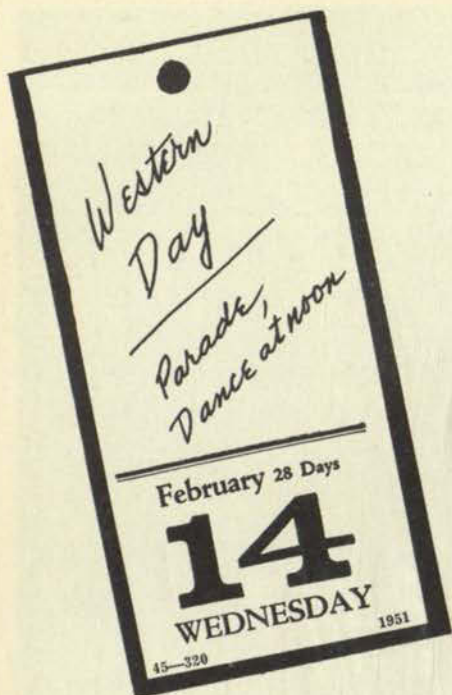 Western
Day
Parade,
Dance at noon
February 28 Days
14
WEDNESDAY
45—320 1951